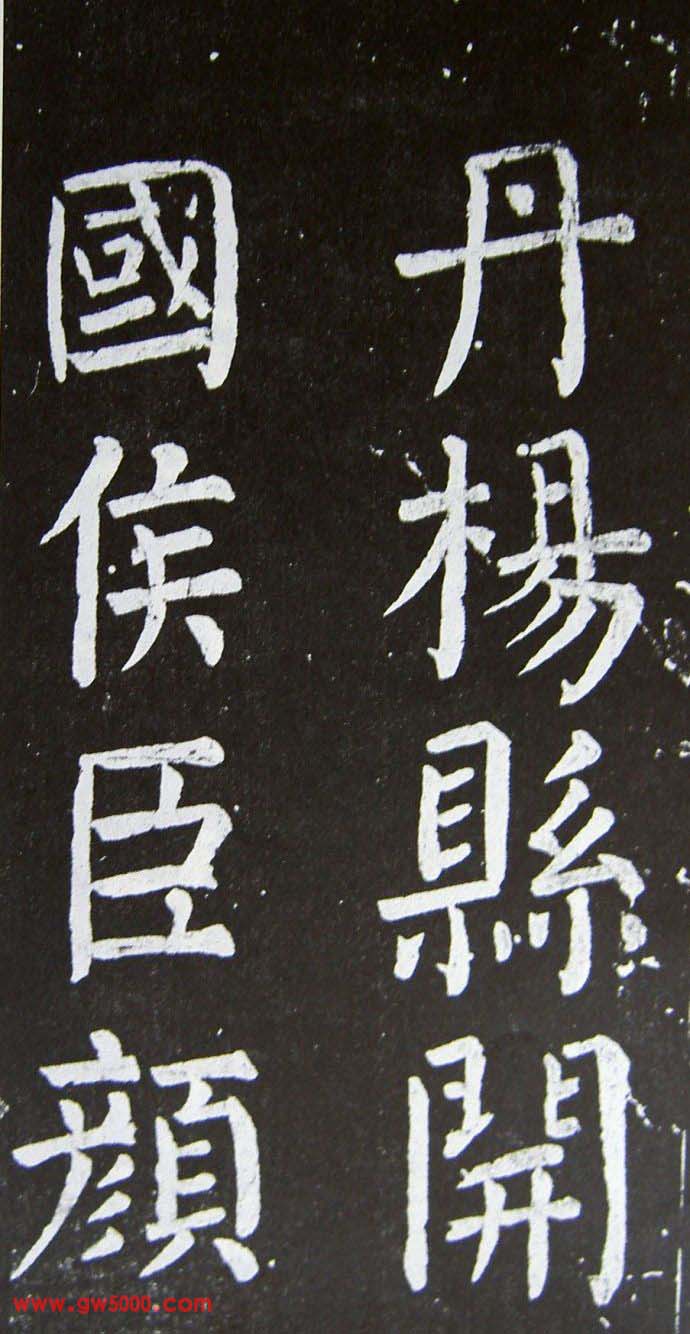 丹楊縣開
國侯臣顏
www.gw5000.com